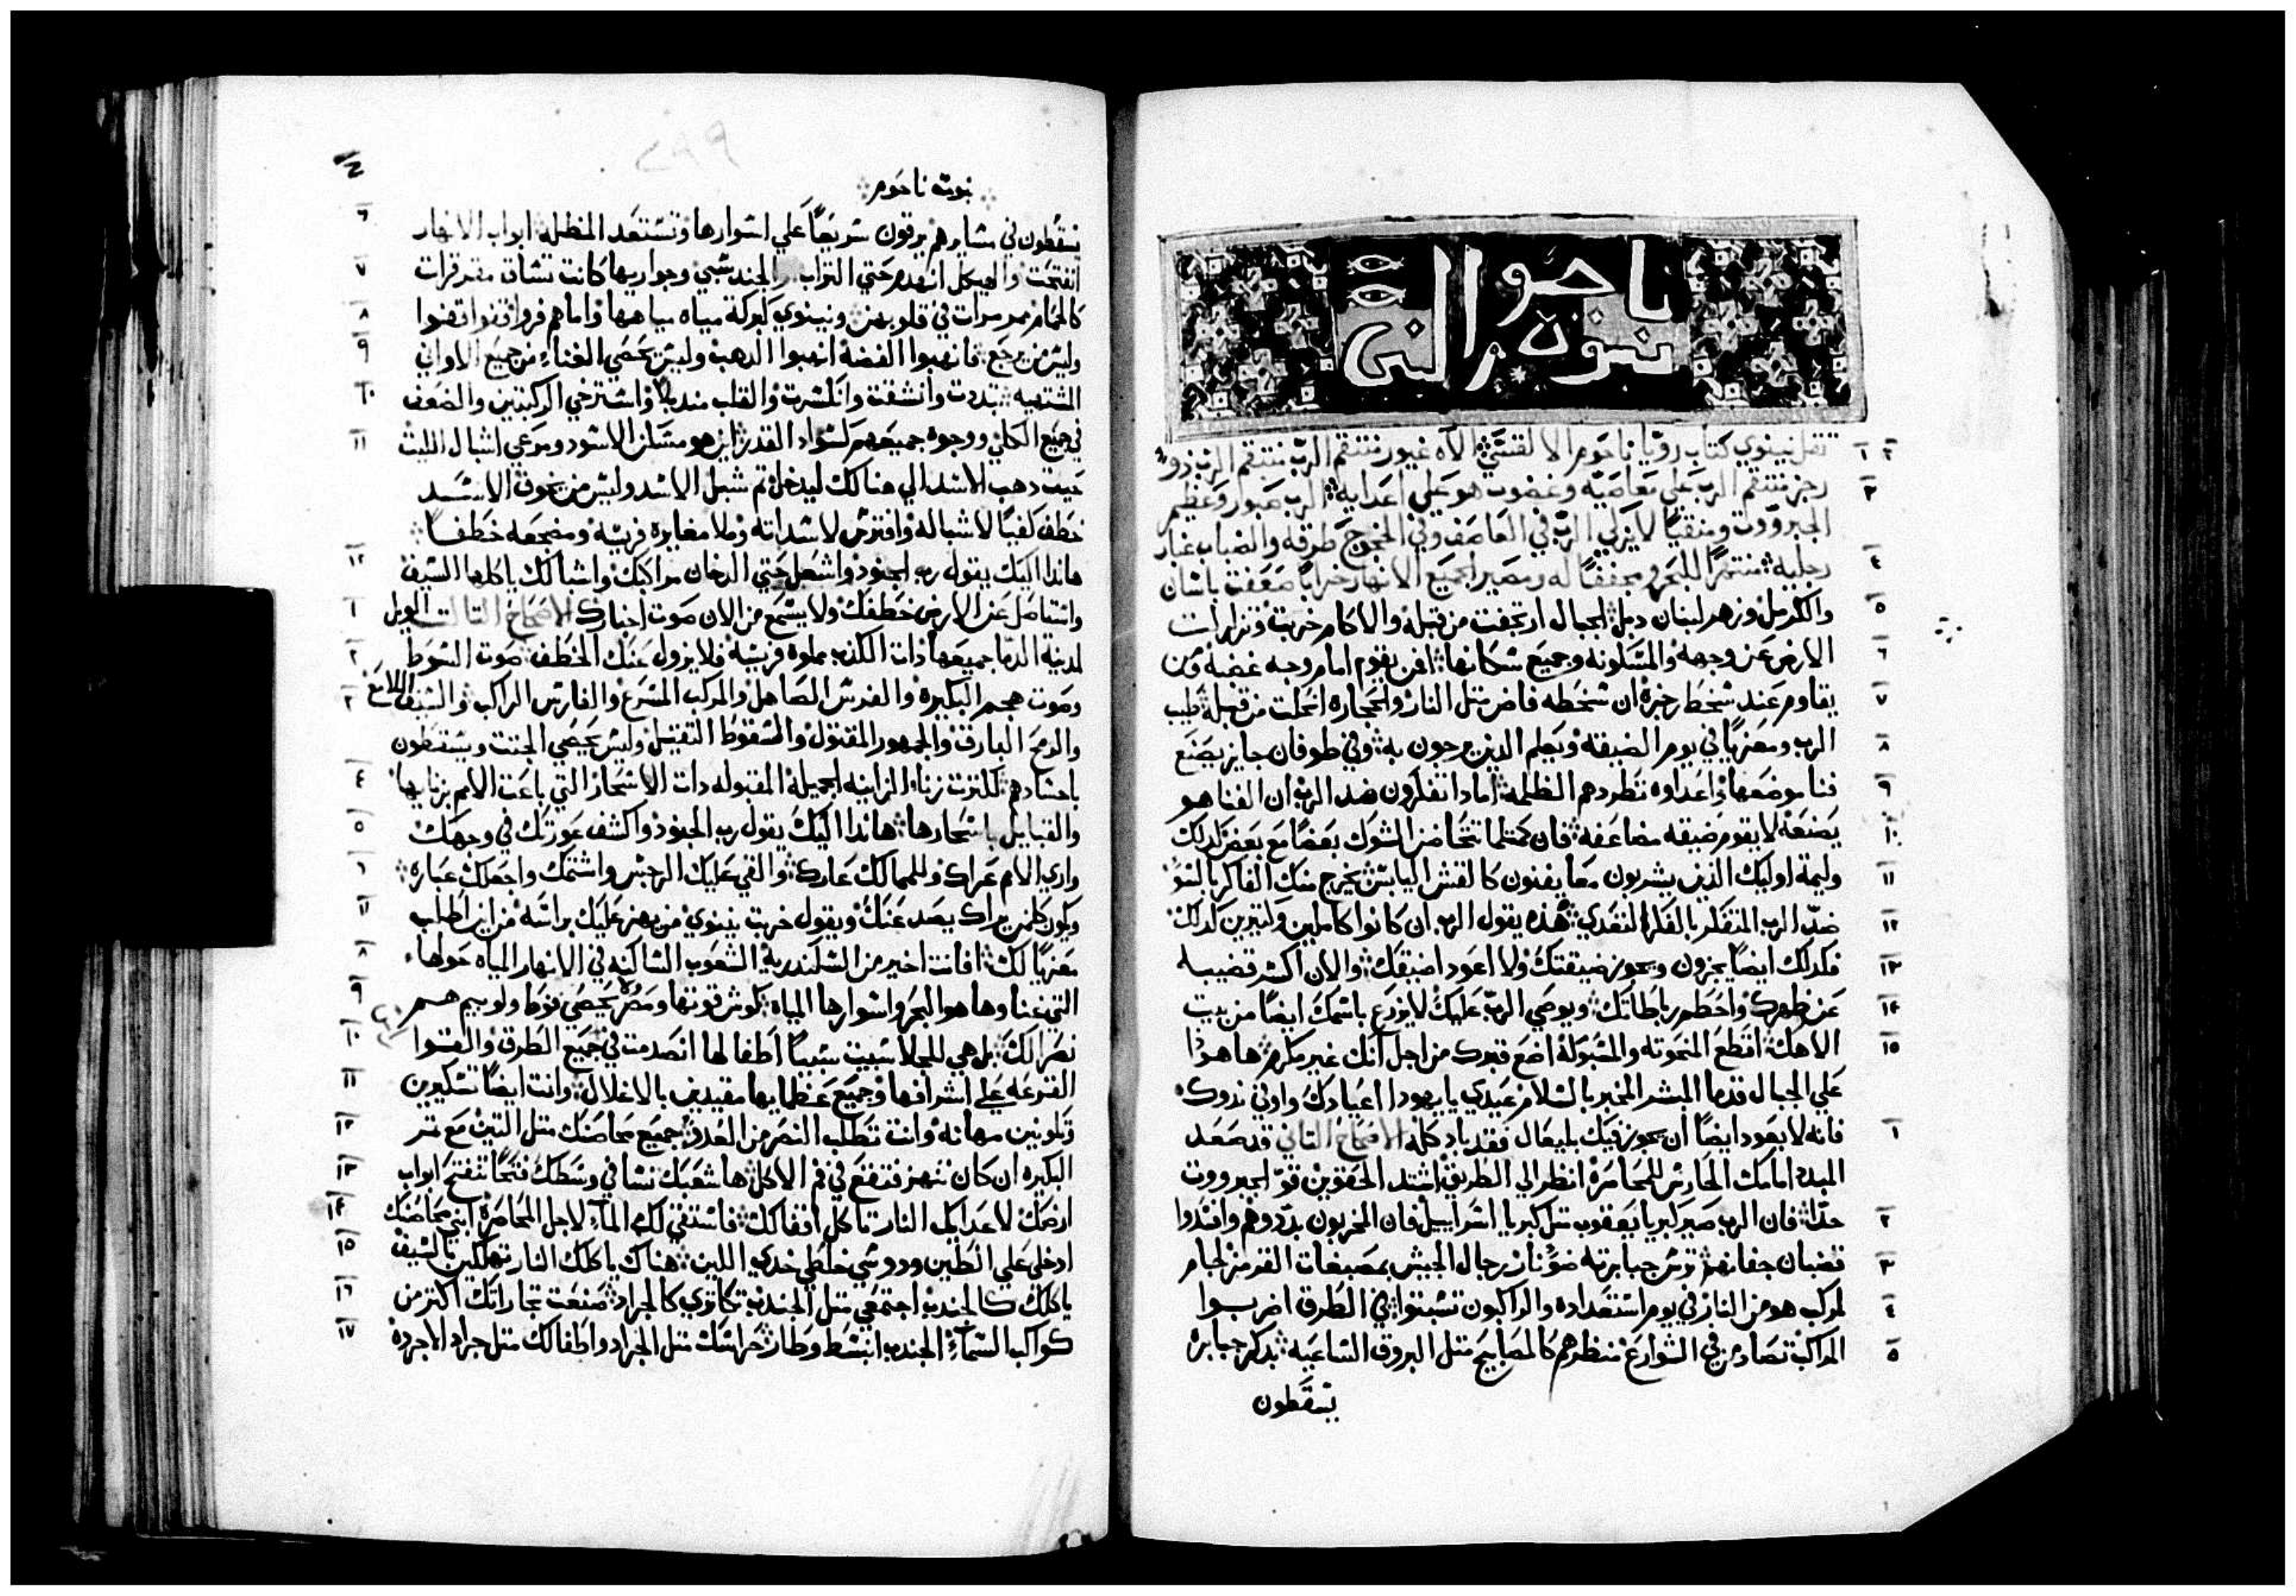 ناحوم
نبوة النبي
٢ ١ تقل نينوي كتاب رويا ناحوم الالقسي الاه غيور منتقم الرب منتقم الرب ذو
٣ رجز منتقم الرب علي معاصيه وغضوب هو علي اعدايه الرب صبور وعظيم
الجبرووت ومنقيًا لا يزكي الرب في العاصف وفي طرقه والضباب غبار
٤ رجليه منتهرًا للبحر ومجففًا له ومصيرا جميع الانهار خرابًا ضعفت باشان
٥ والكرمل وزهر لبنان دبل الجبال ارتجفت من قبله والاكام خربت وتزلزلت
٦ الارض عن وجهه والمسكونه وجميع سكانها فمن يقوم امام وجه غضبه ومن
٧ يقاوم عند سخط رجزه ان سخطه فاض متل النار والحجاره انحلت من قبله طيب
٨ الرب ومعزيًا في يوم الضيقه ويعلم الذين يرجون به وفي طوفان جايز يصنع
٩ فنا موضعها واعداوه تطردهم الظلمه امادا تفكرون ضد الرب ان الفنا هو
١٠ يصنعه لا يقوم ضيقه مضاعفه فان كمتلما تتحاضن الشوك بعضًا مع بعض كدلك
١١ وليمة اوليك الذين يشربون معًا يفنون كالقش اليابس يخرج منك الفاكر بالسو
١٢ ضد الرب المتفكر بالفكر التعدي هذه يقول الرب ان كانوا كاملين وكتيرين كدلك
١٣ فكدلك ايضًا يجزون ويجوز ضيقتك ولا اعود اضيقك والان اكسر قضيبه
١٤ عن ظهرك واحطم رباطاتك ويوصي الرب عليك لا يزرع باسمك ايضًا من بيت
١٥ الاهك اقطع المنحوته والمسبوكه اضع قبرك من اجل انك غير مكرم ها هوذا
علي الجبال قدما المبشر المخبر بالسلام عيدي يا يهودا اعيادك واوفي ندورك
١ فانه لا يعود ايضًا ان يجوز فيك بليعال فقد باد كله الاصحاح التاني قد صعد
المبدد امامك الحارس للمحاصرة انظر الي الطريق اشتد الحقوين قوّ الجبرووت
٢ جدًا فان الرب صير كبريا يعقوب متل كبريا اسراييل فان المخربون بددوهم وافسدوا
٣ قضبان جفانهم ترس جبابرته رجال الجيش بمصبغات القرمز لجام
٤ المركب هو من النار في يوم استعداده والراكبون تشبتوا في الطرق اضربوا
٥ المراكب تصادمن في الشوارع منظرهم كالمصابيح متل البروق الساعيه بدكر جبابره
يسقطون
نبوة ناحوم
٦ يسقطون في مسايرهم يرقون سريعًا علي اسوارها وتستعد المظله ابواب الانهار
٧ انفتحت والهيكل انهدم حتي التراب والجند سبي وجواريها كانت تساق مقرقرات
٨ كالحمام مرمرات في قلوبهن ونينوي كبركة مياه مياهها واما هم فروا قفوا قفوا
٩ وليس من يرجع فانهبوا الفضه انهبوا الدهب وليس يحصي الغناء من جميع الاواني
١٠ المشتهيه تبددت وانشقت وانكسرت والقلب واسترخي الركبتين والضعف
١١ في جميع الكلي ووجوه جميعهم كسواد القدر اين هو مسكن الاسود ومرعي اشبال الليت
حيت دهب الاسد الي هنالك ليدخل تم شبل الاسد وليس من يخوف الاسد
خطف كفيًا لاشباله وافترس لاسداته وملا مغايره فريسه ومضجعه خطفًا
١٢ هاندا اليك يقول رب الجنود واشعل حتي الدخان مراكبك واشبالك ياكلها السيف
١ واستاصل عن الارض خطفك ولا يسمع من الان صوت اخبارك الاصحاح التالت الويل
٢ لمدينة الدما جميعها ذات الكذب مملوه فريسه فلا يزول عنك الخطف صوت السوط
٣ وصوت هجم البكيره والفرس الصاهل والمركب المسرع والفارس الراكب والسيف اللامع
والرمح البارق والجمهور المقتول والسقوط التقيل وليس يحصي الجتت ويسقطون
٤ باجسادهم لكترت زناء الزانيه الجميله المقبوله ذات الاسحار التي باعت الامم بزناها
٥ والقبايل باسحارها هاندا اليك يقول رب الجنود واكشف عورتك في وجهك
٦ واري الامم عراك وللممالك عارك والقي عليك الرجس واشتمك واجعلك عباره
٧ ويكون كلمن يراك يصد عنك ويقول خربت نينوي من يهز عليك براسه من اين اطلب
٨ معزيًا لك افانت اخير من اسكندرية الشعوب الساكنه في الانهار المياه حولها
٩ التي غناوها هو البحر واسوارها المياه كوش قوتها ومصر يحصي فوط ولوبيم هم
١٠ نصرا لك بل هي للجلا سبيت سبيًا اطفالها انصدمت في جميع الطرق والقوا
١١ القرعه علي اشرافها وجميع عظمايها مقيدين بالاغلال وانت ايضًا تسكرين
١٢ وتكونين مهانه وانت تطلب النصر من العدو جميع محاصنك متل التين مع تمر
١٣ البكيره ان كان تنهز فتقع في فم الاكل ها شعبك نسا في وسطك فتحًا تنفتح ابواب
١٤ ارضك لاعدايك النار تاكل اقفالك فاستقي لك الماء لاجل المحاصرة ابني محاصنك
١٥ ادخلي علي الطين ودوسي خلطي خدي اللبن هناك ياكلك النار تهلكين بالسيف
١٦ ياكلك كالجندب اجتمعي متل الجندب تكاتري كالجراد صنعت تجاراتك اكتر من
١٧ كواكب السماء الجندب انبسط وطار حراسك متل الجراد واطفالك متل جراد الاجرده